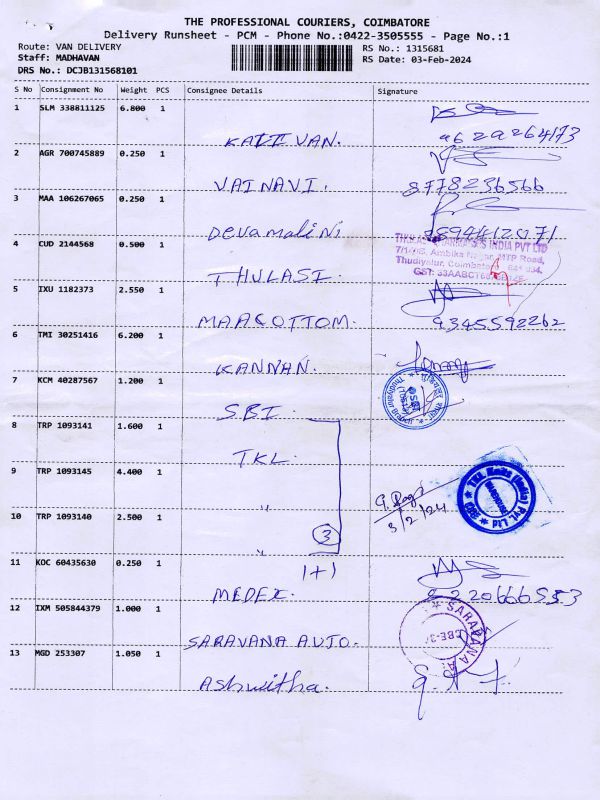 THE PROFESSIONAL COURIERS, COIMBATORE
Delivery Runsheet - PCM - Phone No.:0422-3505555 - Page No.:1
Route: VAN DELIVERY
RS No.: 1315681
Staff: MADHAVAN
RS Date: 03-Feb-2024
DRS No.: DCJB131568101
S No Consignment No Weight PCS Consignee Details Signature
1 SLM 338811125 6.800 1
KALIVAN. 9629264173
2 AGR 700745889 0.250 1
VAINAVI. 8778236566
3 MAA 106267065 0.250 1
Devamalini
4 CUD 2144568 0.500 1
INDIA PVT LTD
Ambika Nagar, MTP Road,
Thudiyalur, Coimbatore
THULASI.
5 IXU 1182373 2.550 1
MAACOTTOM. 9345592262
6 TMI 30251416 6.200 1
KANNAN.
7 KCM 40287567 1.200 1
SBI.
8 TRP 1093141 1.600 1
TKL.
9 TRP 1093145 4.400 1
"
3/2/24
TKL Knits (India) Pvt. Ltd
10 TRP 1093140 2.500 1
" 3
11 KOC 60435630 0.250 1
1+1
MEDEX. 9220666553
12 IXM 505844379 1.000 1
SARAVANA AUTO. SARAVANA
13 MGD 253307 1.050 1
Ashwitha.